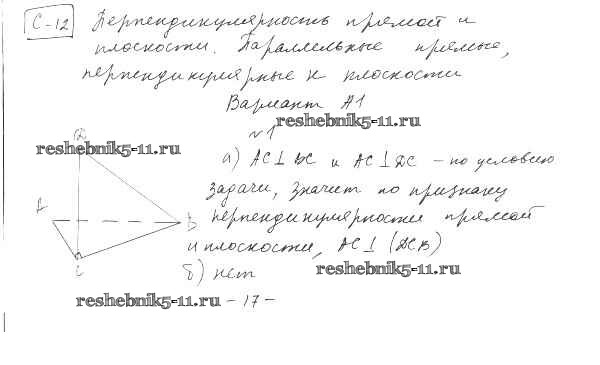 С-12 Перпендикулярность прямой и
плоскости. Параллельные прямые,
перпендикулярные к плоскости
Вариант А1
№1
reshebnik5-11.ru
D
reshebnik5-11.ru
а) AC⊥BC и AC⊥DC – по условию
задачи, значит по признаку
A
перпендикулярности прямой
B
и плоскости, AC⊥(DCB)
C
б) нет
reshebnik5-11.ru
reshebnik5-11.ru
– 17 –